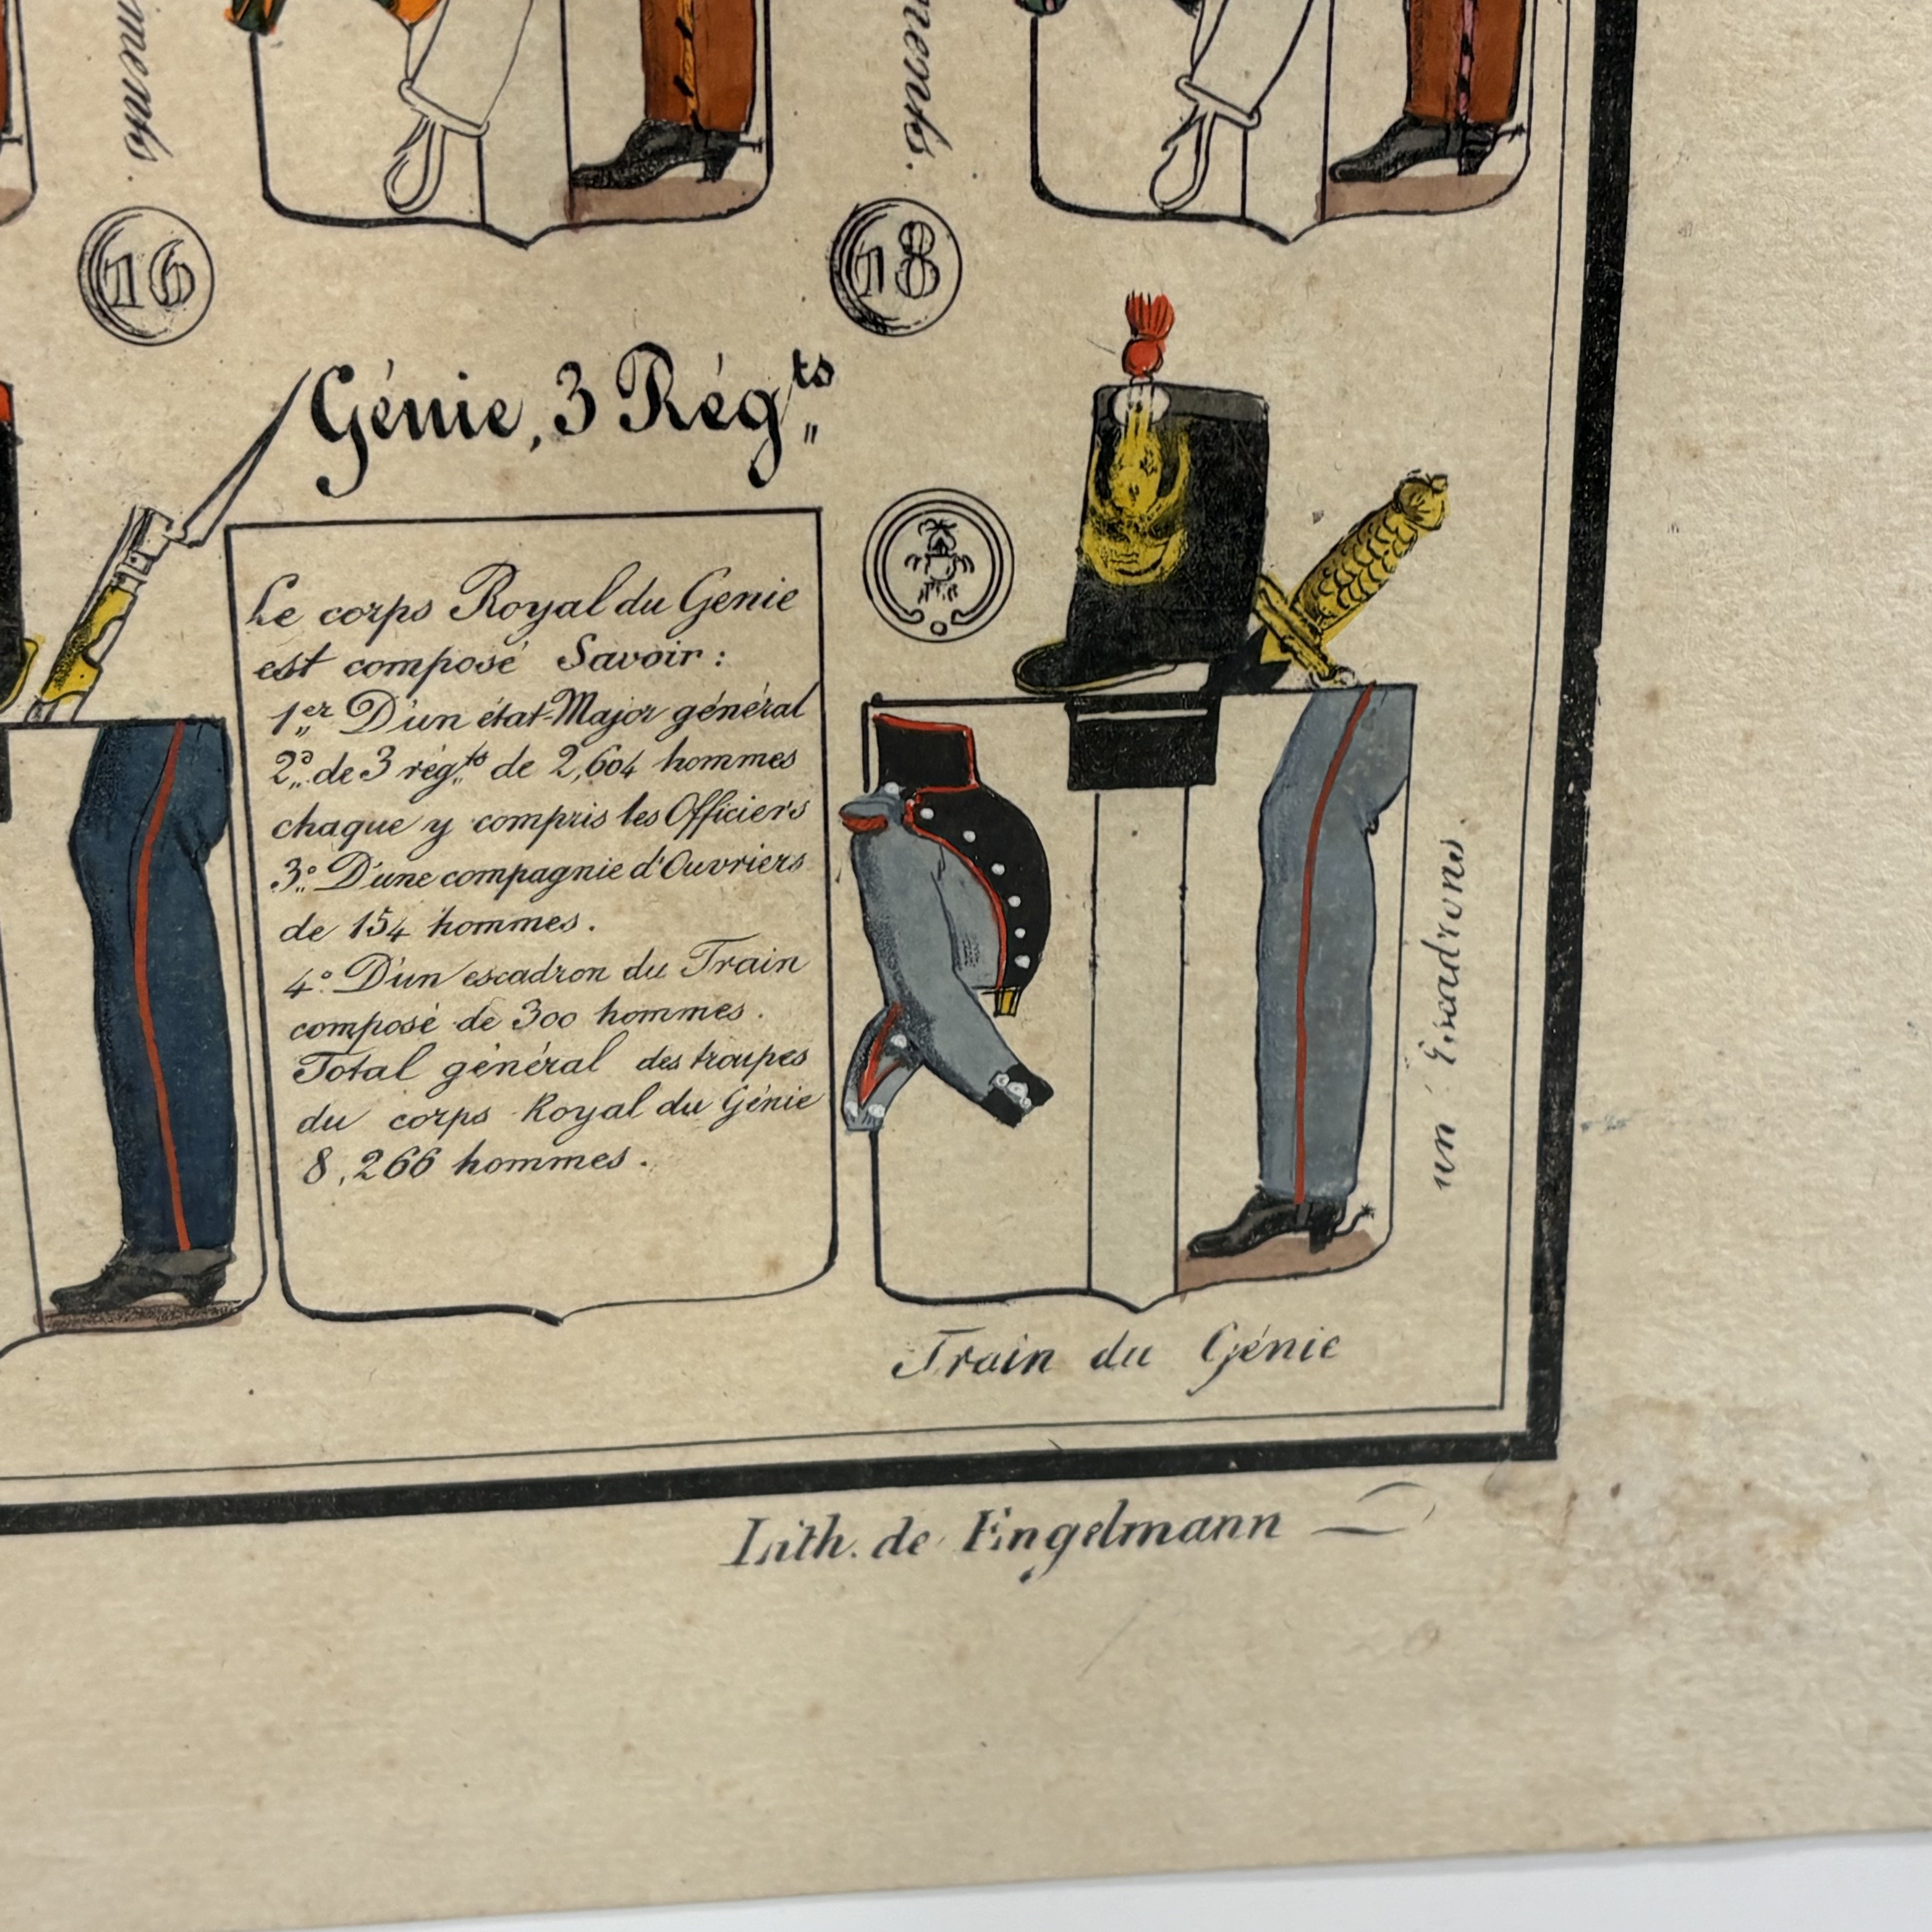 ments.
ments.
16
18
Génie, 3 Rég.ts
Le corps Royal du Genie
est composé Savoir :
1er D'un état-Major général
2º. de 3 régts de 2,604 hommes
chaque y compris les Officiers
3º. D'une compagnie d'Ouvriers
de 154 hommes.
4º. D'un escadron du Train
composé de 300 hommes.
Total général des troupes
du corps Royal du Génie
8,266 hommes.
un Escadrons
Train du Génie
Lith. de Engelmann